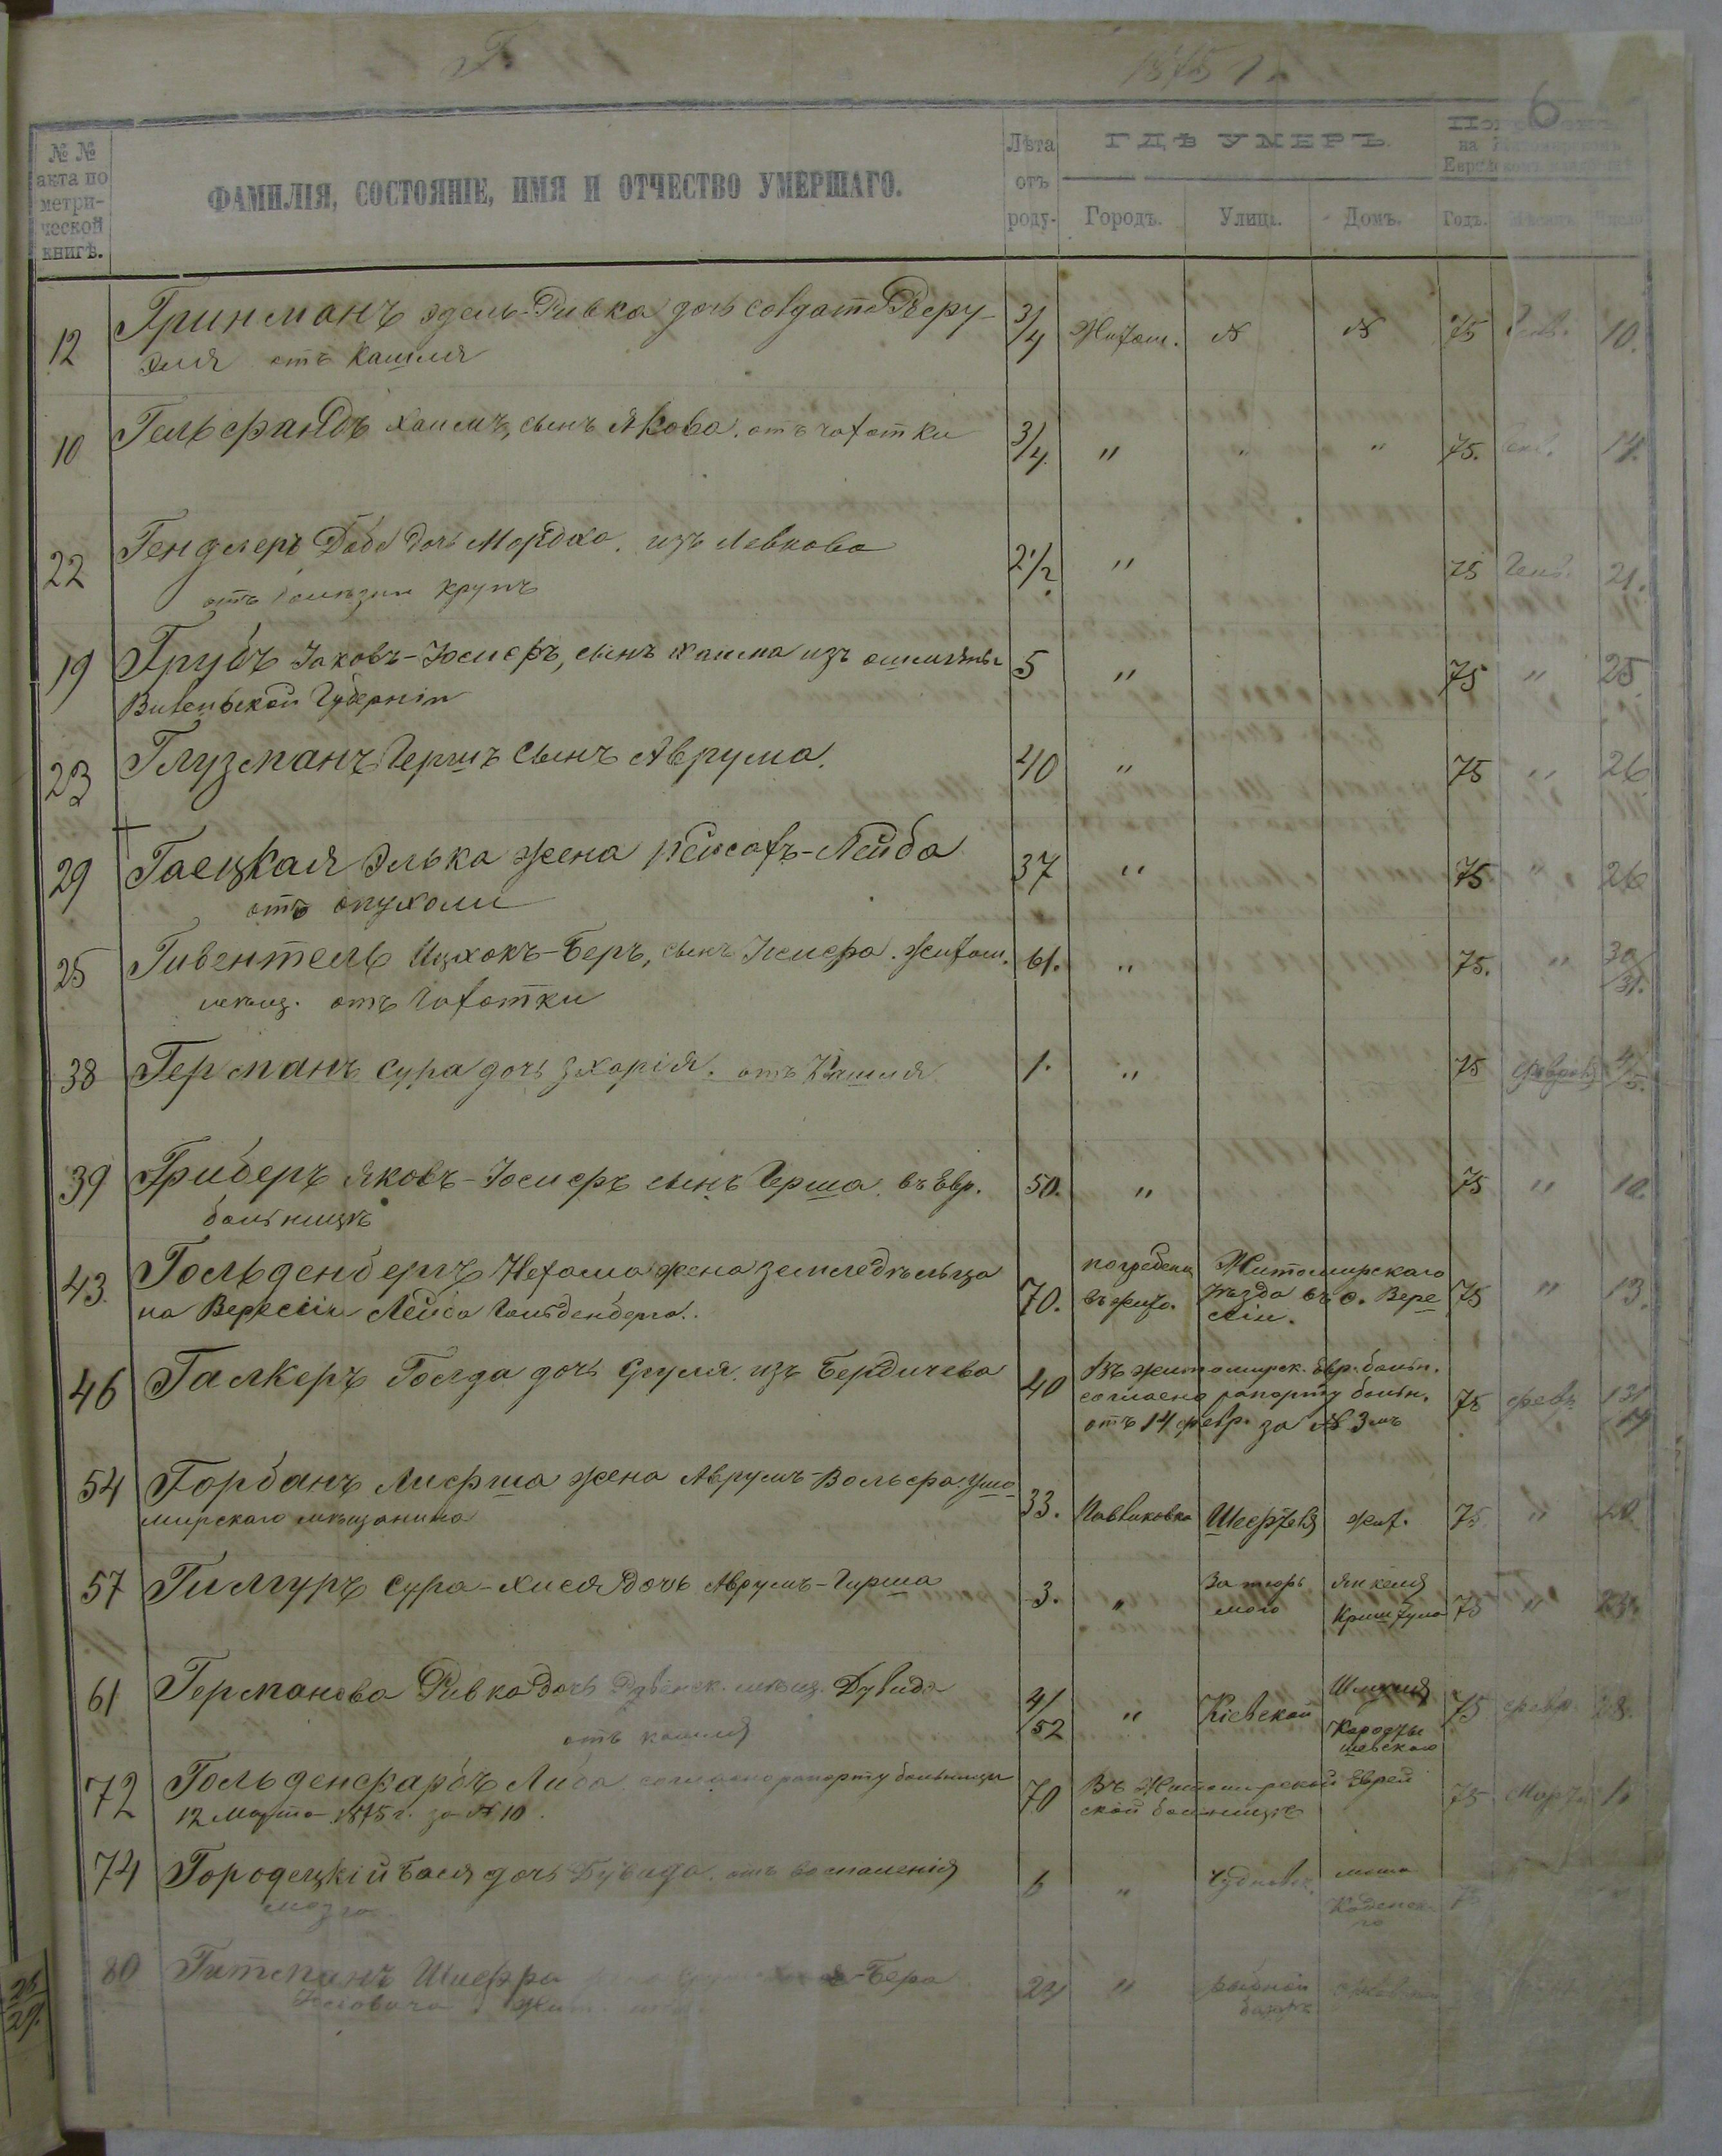 Г. 1875 г.
6
№ № акта по метрической книгѣ.
ФАМИЛІЯ, СОСТОЯНІЕ, ИМЯ И ОТЧЕСТВО УМЕРШАГО.
Лѣта отъ роду-
ГДѢ УМЕРЪ.
Городъ. Улица. Домъ. Годъ. Мѣсяцъ. Число
12 Гринманъ Эдель-Ривка дочь солдата Іеру- 3/4 Житом. № № 75 Генв. 10.
отъ кашля
10 Гельфандъ Хаимъ, сынъ Якова. отъ чахотки 3/4 " " " 75. Генв. 14.
22 Гендлеръ Доба дочь Мордко. изъ Левкова 2 1/2 " 75 Генв. 21.
отъ болѣзни крупъ
19 Грубъ Іаковъ-Іосифъ, сынъ Хаима изъ 5 " 75 " 25
Виленской Губерніи
23 Глузманъ Гершъ сынъ Аврума. 40 " 75 " 26
29 Гаецкая Элька жена -Лейба 37 " 75 " 26
отъ опухоли
25 Гивентель Ицхокъ-Беръ, сынъ Іосифа. Житом. 61. " 75. " 30/31.
мѣщ. отъ чахотки
38 Германъ Сура дочь Зхарія. отъ Кашля 1. " 75 февраля 4/5.
39 Гриберъ Яковъ-Іосифъ сынъ Герша. въ Евр. 50. " 75 " 10.
больницѣ
43. Гольденбергъ Нехама жена земледѣльца 70. погребена въ Жито. Житомирскаго Уѣзда въ с. Вере- 75 " 13.
на Вересіи Лейба Гольденберга.. сіи.
46 Галкеръ Голда дочь Сруля. изъ Бердичева 40 Въ житомирск. Евр. больн. 75 февр. 13/14
согласно рапорту больн.
отъ 14 февр. за № 3мъ
54 Горбанъ Лифша жена Аврумъ-Вольфа. Ушо- 33. Павликовка жит. 75 " 20.
мирскаго мѣщанина
57 Гилгуръ Сура-Хися дочь Аврумъ-Гирша 3. " За тюрь- Янкеля 75 " 23.
мою
61 Германова Ривка дочь мѣщ. Дувида 4/52 " Кіевской Шмуля 75 февр. 28.
отъ кашля шевскаго
72 Гольденфарбъ Либа. согласно рапорту больницы 70 Въ Житомирской Еврей- 75 Марта
12 Марта 1875 г. за № 10. ской больницѣ
74 Городецкій Бася дочь Дувида. отъ воспаленія 6 " Чудновск.
мозга
80 Гитманъ Шифра -Бера 24 " Рыбной
26
29.